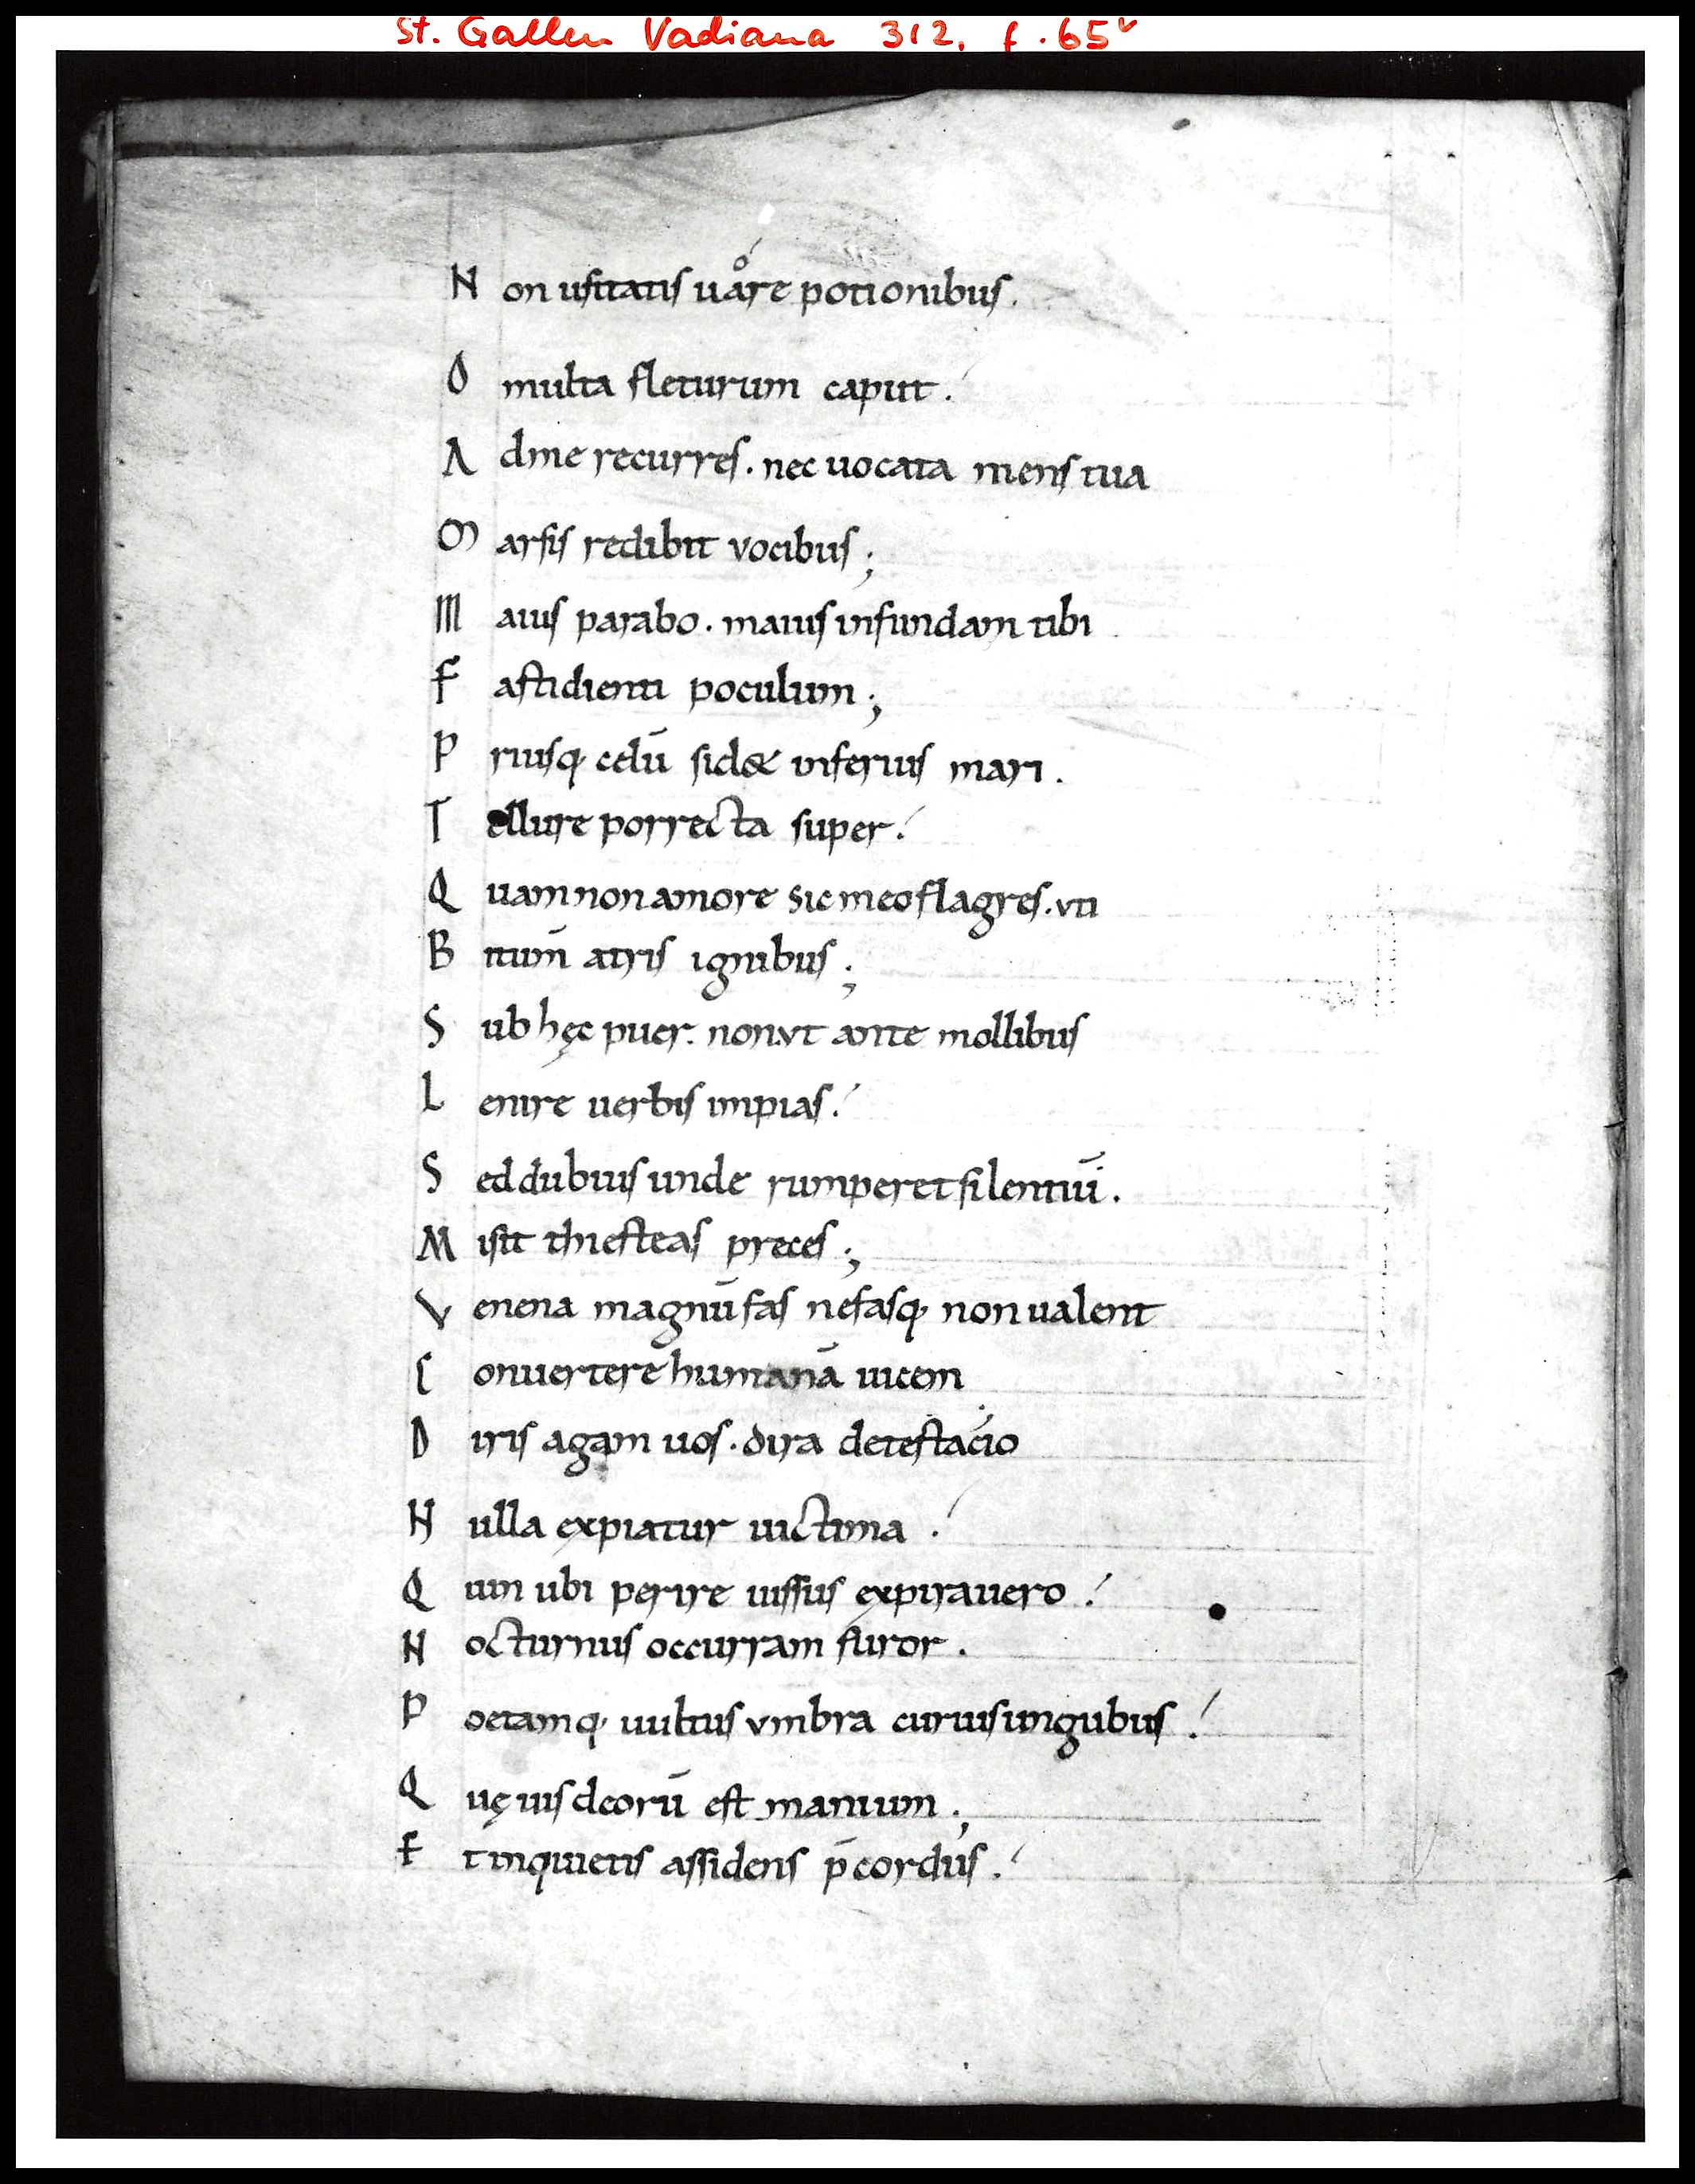 St. Gallen Vadiana 312, f. 65v
N on usitatis uaͦre potionibus.
O multa fleturum caput.
A dme recurres. nec uocata mens tua
M arsis redibit vocibus;
M aius parabo. maius infundam tibi
F astidienti poculum;
P riusq; celū sid& inferius mari.
T ellure porrecta super.
Q uam non amore sic meo flagres. vti
B itum̄ atris ignibus;
S ub hęc puer. non vt ante mollibus
L enire uerbis impias.
S ed dubius unde rumperet silentiū.
M isit thiesteas preces;
V enena magnū fas nefasq; non ualent
C onuertere humanā uicem
D iris agam uos. dira detestacio
N ulla expiatur uictima.
Q uin ubi perire iussus expirauero.
N octurnus occurram furor.
P oetamq; uultus vmbra curuis ungubus.
Q uę uis deorū est manium;
E t inquietis assidens p̄cordiis.